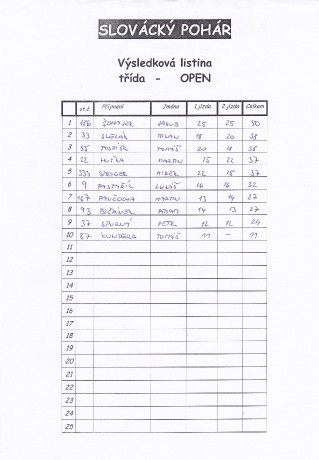 SLOVÁCKÝ POHÁR
Výsledková listina
třída - OPEN
st.č. Příjmení Jméno 1.jízda 2.jízda Celkem
1 186 JAKUB 25 25 50
2 33 SLEZÁK MILAN 18 20 38
3 55 TOMÁŠ 20 18 38
4 22 HUŤKA MARTIN 15 22 37
5 333 22 15 37
6 9 LUKÁŠ 16 16 32
7 167 PANČOCHA MARTIN 13 14 27
8 93 ADAM 14 13 27
9 37 PETR 12 12 24
10 87 KUNDERA TOMÁŠ 11 - 11
11
12
13
14
15
16
17
18
19
20
21
22
23
24
25